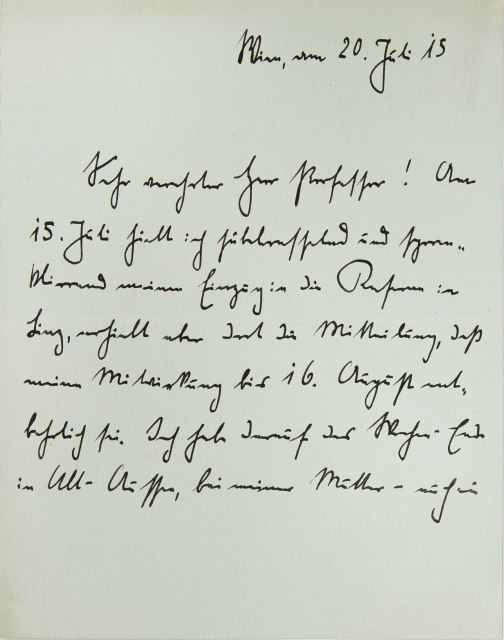 Wien, am 20. Juli 15
Sehr verehrter Herr Professor! Am
15. Juli hielt ich säbelrasselnd und sporen-
klirrend meinen Einzug in die Kaserne in
Linz, erhielt aber dort die Mitteilung, daß
meine Mitwirkung bis 16. August ent-
behrlich sei. Ich habe darauf das Wochen-Ende
in Alt-Aussee, bei meiner Mutter -